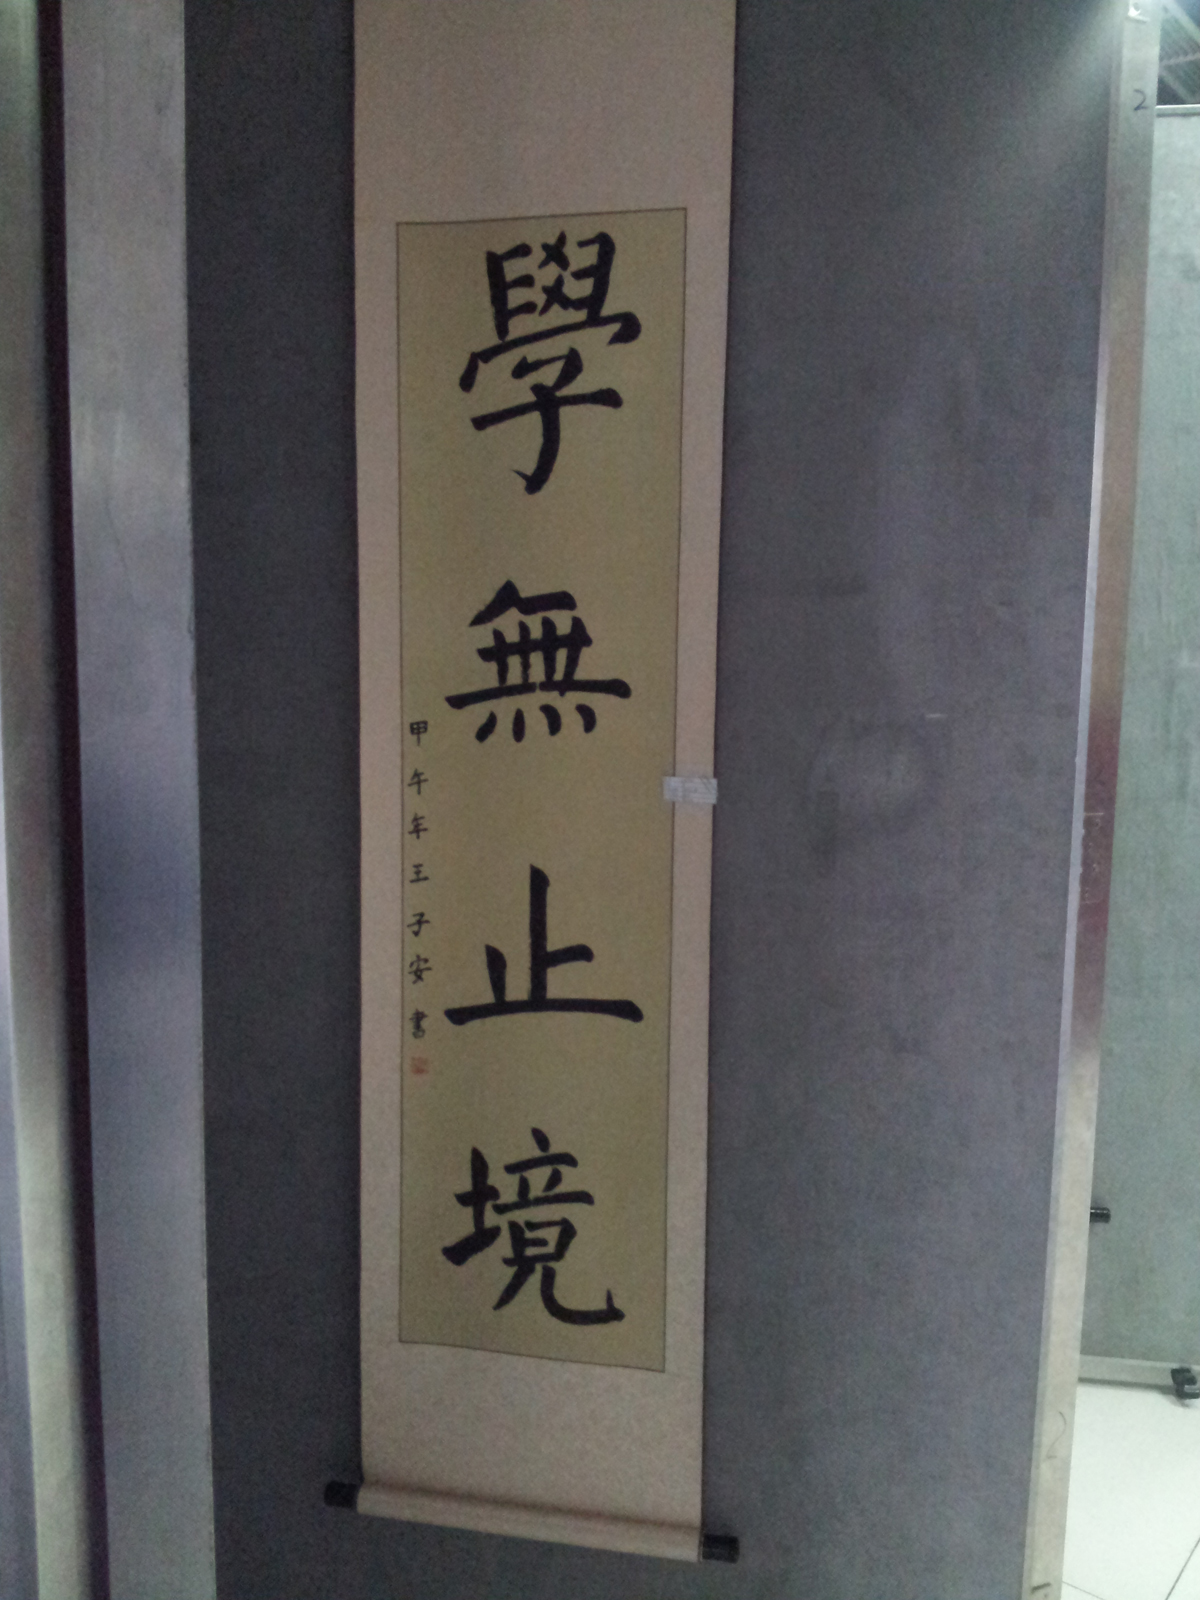 學無止境
甲午年王子安書
2
2